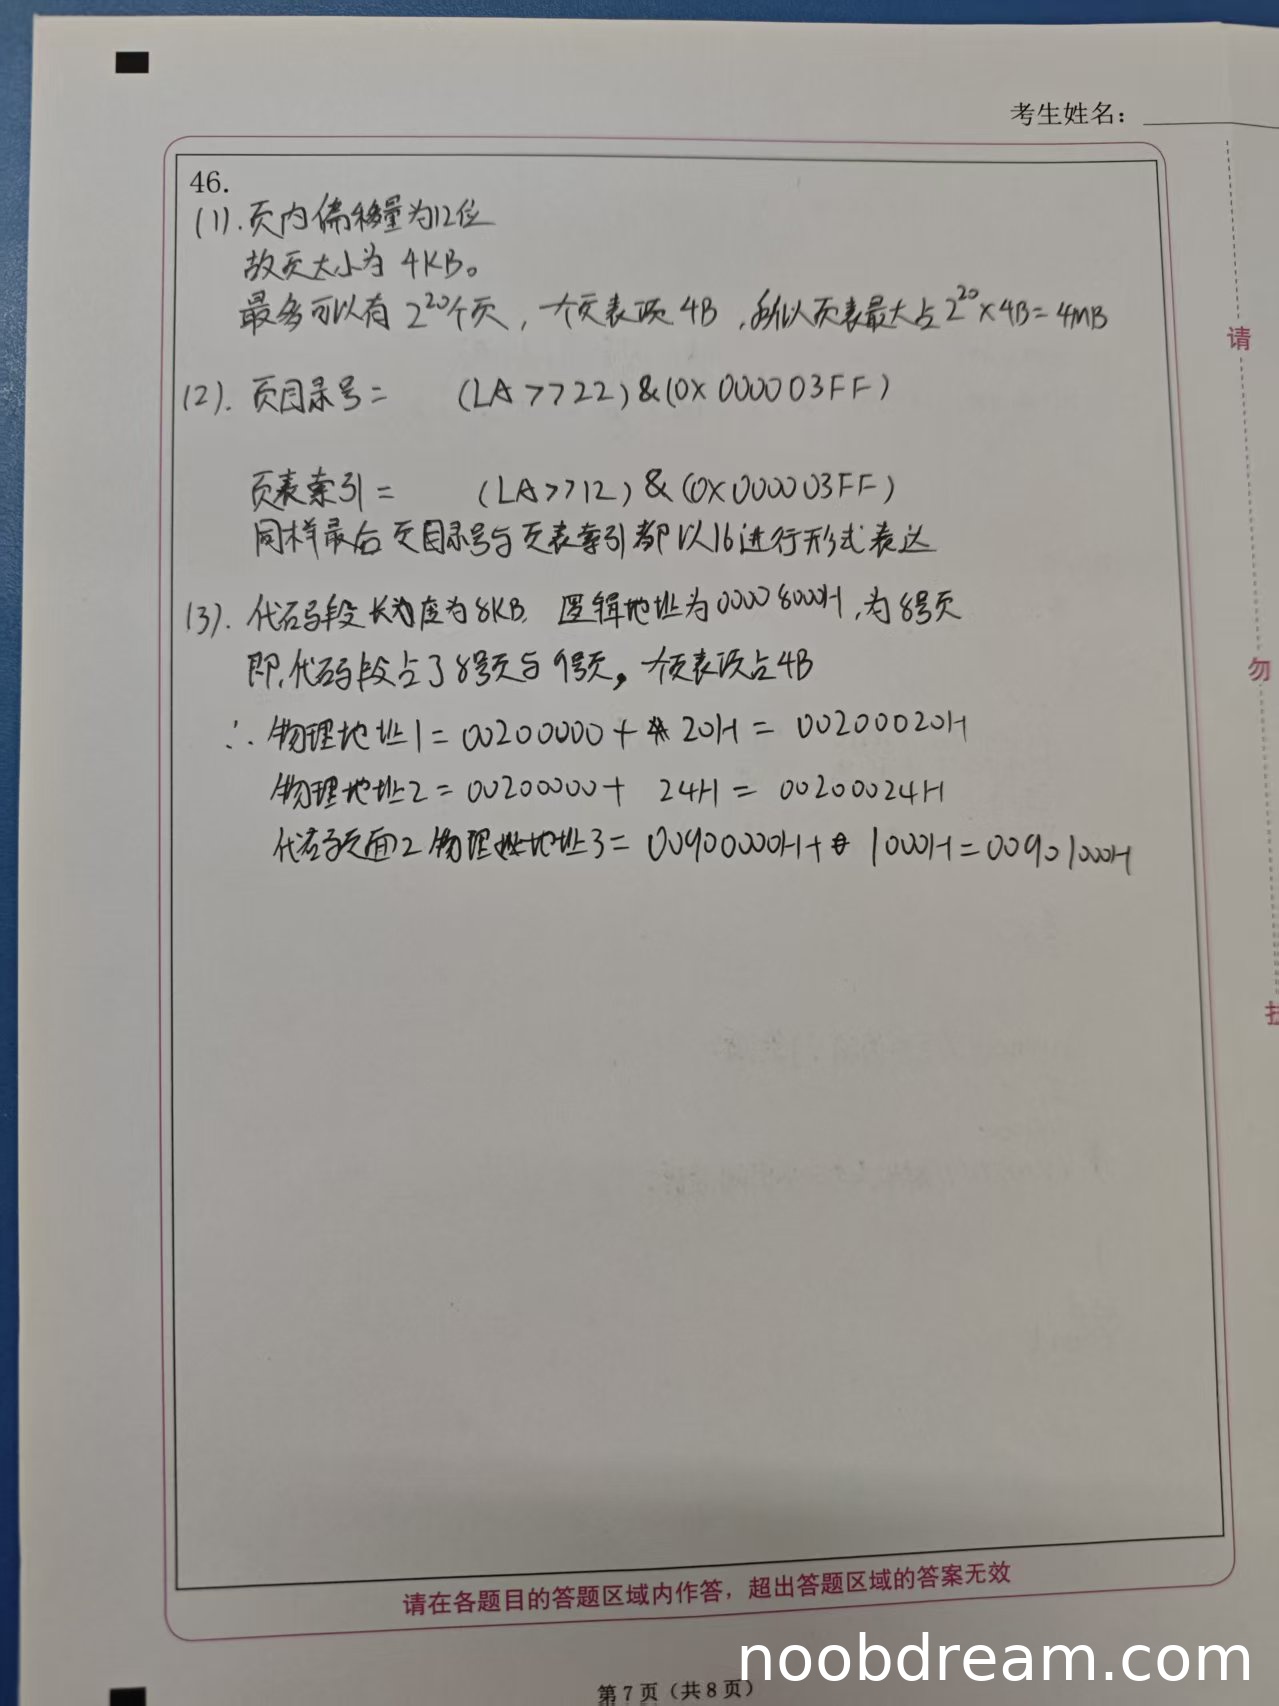 考生姓名：
46.
(1).页内偏移量为12位
故页大小为 4KB。
最多可以有 2²⁰个页，一个页表项 4B，所以页表最大占 2²⁰×4B=4MB
请
(2). 页目录号= (LA>>22)&(0X000003FF)
页表索引= (LA>>12)&(0X000003FF)
同样最后页目录号与页表索引都以16进行形式表达
(3). 代码段长度为8KB, 逻辑地址为00008000H,为8号页
勿
即,代码段占了8号页与9号页，一个页表项占4B
∴ 物理地址1=00200000+ 20H = 00200020H
物理地址2=00200000+ 24H = 00200024H
代码页面2物理地址3= 00900000H+ 1000H=00901000H
请在各题目的答题区域内作答，超出答题区域的答案无效
第 7 页（共 8 页）
noobdream.com